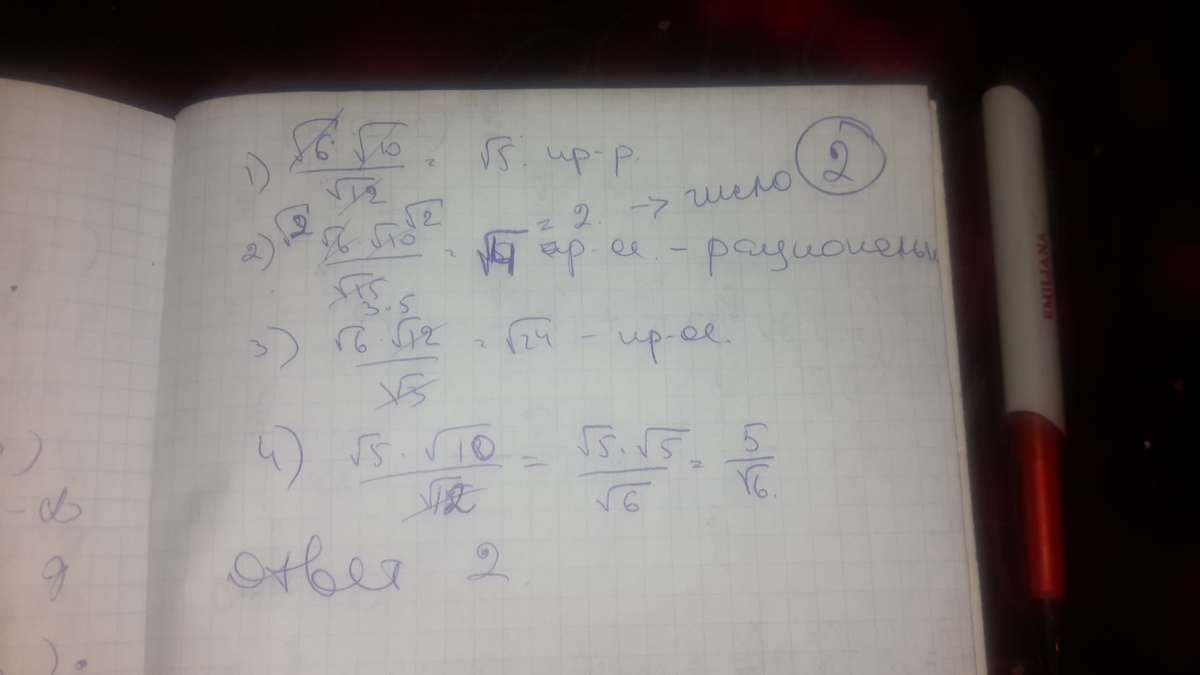 1) √6 · √10 / √12 = √5. ир-р.
2
√2 √2 = 2. → число
2) √6 · √10 / √15 = √4 ир-ое. – рациональн
3·5
3) √6 · √12 / √3 = √24 – ир-ое.
4) √5 · √10 / √12 = √5 · √5 / √6 = 5 / √6.
ответ 2.
EMILIANA